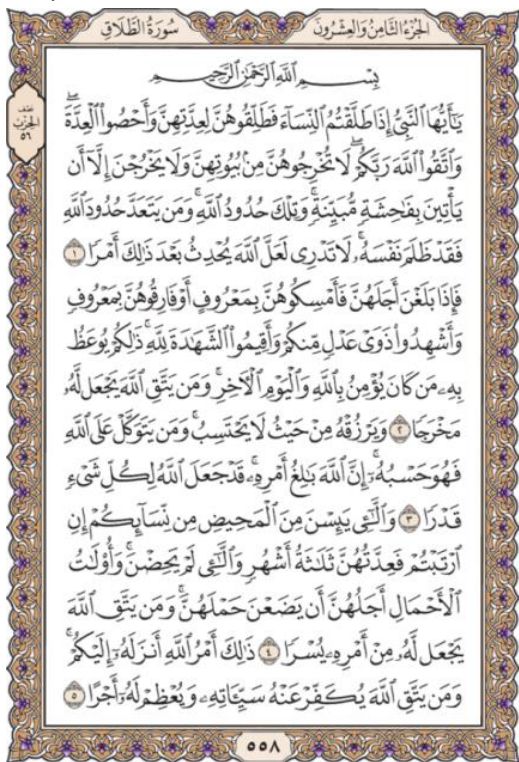 الجُزْءُ الثَّامِنُ وَالعِشْرُونَ
سُورَةُ الطَّلَاقِ
بِسْمِ اللَّهِ الرَّحْمَٰنِ الرَّحِيمِ
نصف
الحزب
٥٦
يَٰٓأَيُّهَا ٱلنَّبِيُّ إِذَا طَلَّقْتُمُ ٱلنِّسَآءَ فَطَلِّقُوهُنَّ لِعِدَّتِهِنَّ وَأَحْصُوا۟ ٱلْعِدَّةَۖ
وَٱتَّقُوا۟ ٱللَّهَ رَبَّكُمْۖ لَا تُخْرِجُوهُنَّ مِنۢ بُيُوتِهِنَّ وَلَا يَخْرُجْنَ إِلَّآ أَن
يَأْتِينَ بِفَٰحِشَةٍ مُّبَيِّنَةٍۚ وَتِلْكَ حُدُودُ ٱللَّهِۚ وَمَن يَتَعَدَّ حُدُودَ ٱللَّهِ
فَقَدْ ظَلَمَ نَفْسَهُۥۚ لَا تَدْرِى لَعَلَّ ٱللَّهَ يُحْدِثُ بَعْدَ ذَٰلِكَ أَمْرًا ١
فَإِذَا بَلَغْنَ أَجَلَهُنَّ فَأَمْسِكُوهُنَّ بِمَعْرُوفٍ أَوْ فَارِقُوهُنَّ بِمَعْرُوفٍ
وَأَشْهِدُوا۟ ذَوَىْ عَدْلٍ مِّنكُمْ وَأَقِيمُوا۟ ٱلشَّهَٰدَةَ لِلَّهِۚ ذَٰلِكُمْ يُوعَظُ
بِهِۦ مَن كَانَ يُؤْمِنُ بِٱللَّهِ وَٱلْيَوْمِ ٱلْءَاخِرِۚ وَمَن يَتَّقِ ٱللَّهَ يَجْعَل لَّهُۥ
مَخْرَجًا ٢ وَيَرْزُقْهُ مِنْ حَيْثُ لَا يَحْتَسِبُۚ وَمَن يَتَوَكَّلْ عَلَى ٱللَّهِ
فَهُوَ حَسْبُهُۥٓۚ إِنَّ ٱللَّهَ بَٰلِغُ أَمْرِهِۦۚ قَدْ جَعَلَ ٱللَّهُ لِكُلِّ شَىْءٍ
قَدْرًا ٣ وَٱلَّٰٓـِٔى يَئِسْنَ مِنَ ٱلْمَحِيضِ مِن نِّسَآئِكُمْ إِنِ
ٱرْتَبْتُمْ فَعِدَّتُهُنَّ ثَلَٰثَةُ أَشْهُرٍ وَٱلَّٰٓـِٔى لَمْ يَحِضْنَۚ وَأُو۟لَٰتُ
ٱلْأَحْمَالِ أَجَلُهُنَّ أَن يَضَعْنَ حَمْلَهُنَّۚ وَمَن يَتَّقِ ٱللَّهَ
يَجْعَل لَّهُۥ مِنْ أَمْرِهِۦ يُسْرًا ٤ ذَٰلِكَ أَمْرُ ٱللَّهِ أَنزَلَهُۥٓ إِلَيْكُمْۚ
وَمَن يَتَّقِ ٱللَّهَ يُكَفِّرْ عَنْهُ سَيِّـَٔاتِهِۦ وَيُعْظِمْ لَهُۥٓ أَجْرًا ٥
٥٥٨